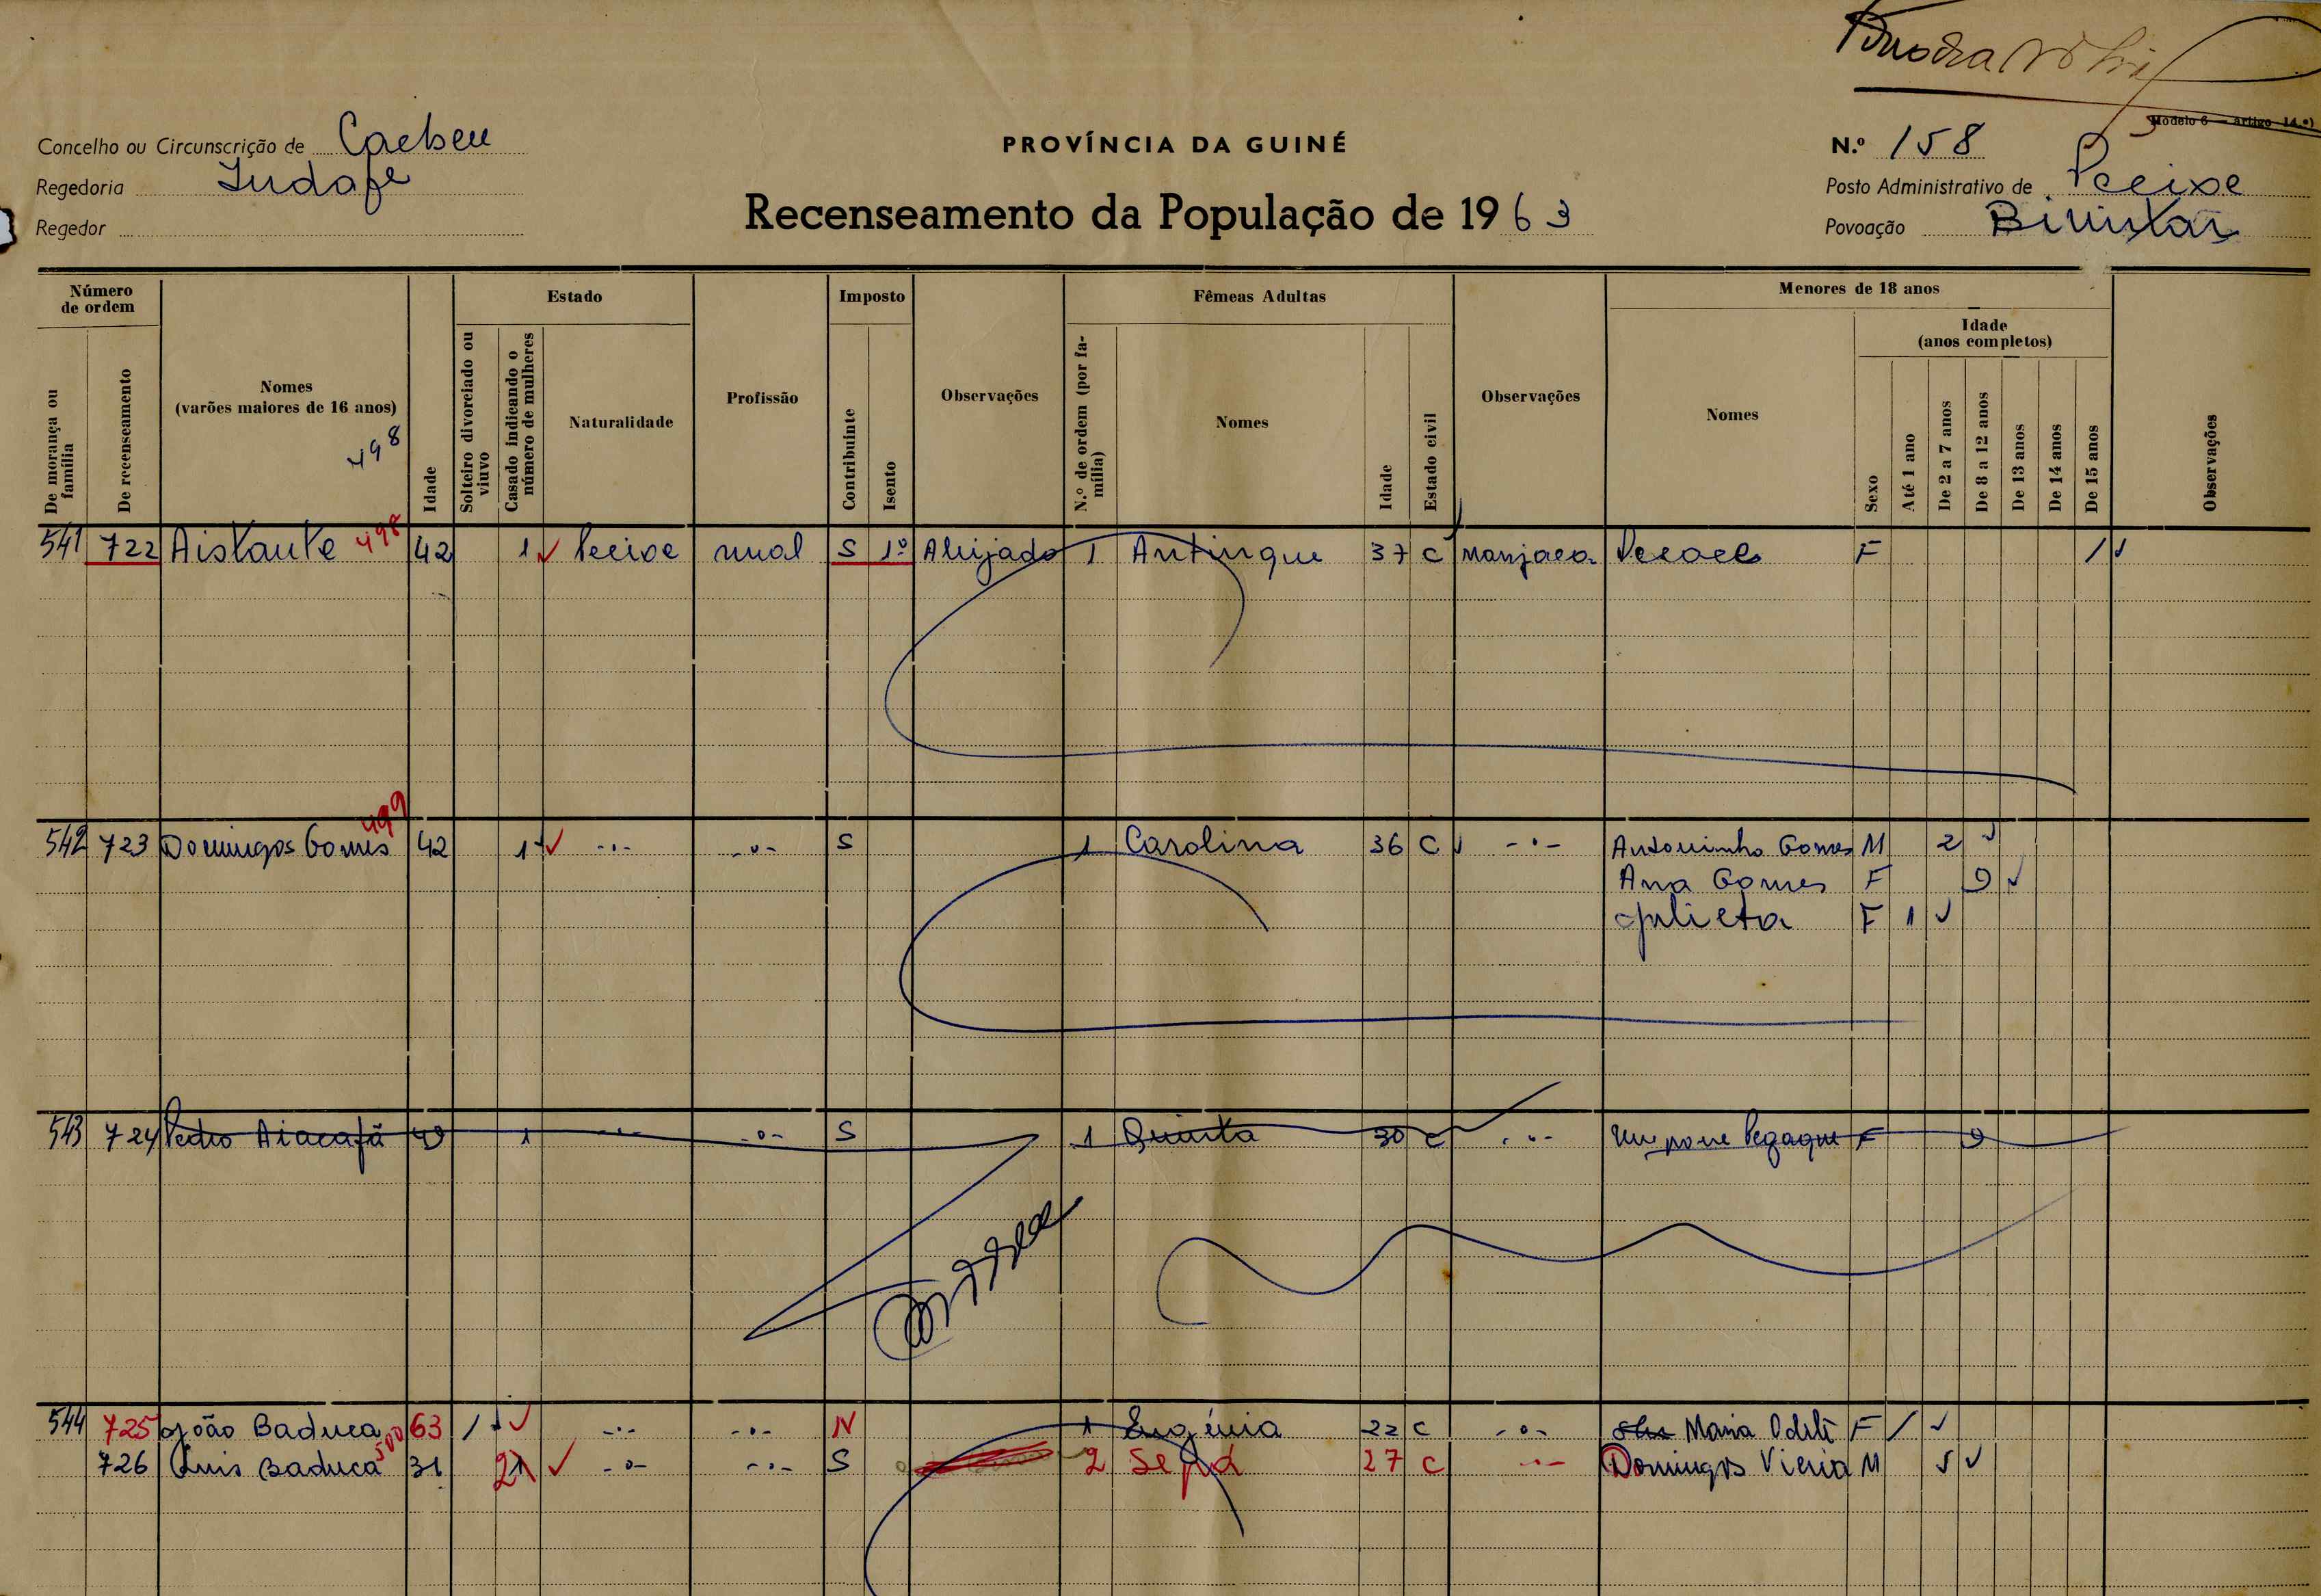 Modelo 6 — artigo 14.º)
Concelho ou Circunscrição de Caebeu
PROVÍNCIA DA GUINÉ
N.º 158
Regedoria
Posto Administrativo de Peeixe
Recenseamento da População de 1963
Regedor
Povoação
Número de ordem
Estado
Imposto
Fêmeas Adultas
Menores de 18 anos
Idade (anos completos)
De morança ou família
De recenseamento
Nomes (varões maiores de 16 anos)
498
Idade
Solteiro divorciado ou viuvo
Casado indicando o número de mulheres
Naturalidade
Profissão
Contribuinte
Isento
Observações
N.º de ordem (por família)
Nomes
Idade
Estado civil
Observações
Nomes
Sexo
Até 1 ano
De 2 a 7 anos
De 8 a 12 anos
De 13 anos
De 14 anos
De 15 anos
Observações
541 722 Aistante 498 42 1 Peeixe rural S 1º Aleijado 1 Antinque 37 C Manjaca F 1
542 723 Domingos Gomes 499 42 1 -·- -o- S 1 Carolina 36 C -·- Antoninho Gomes M 2
Ana Gomes F 9
Julieta F 1
543 724 Pedro 1 -·- -o- S 1 Quinta 30 C -·- F 9
544 725 João Baduca 63 1 -·- -·- N 1 Eugénia 22 C -o- Maria Odete F 1
726 Luis Baduca 500 31 2 -o- -·- S 2 27 C -·- Domingos Vieira M 5